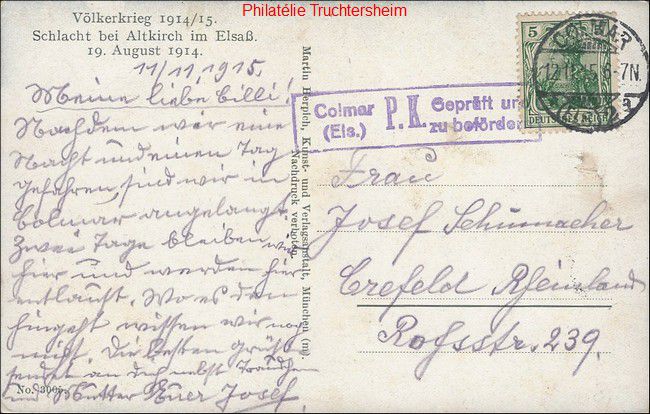 Philatélie Truchtersheim
Völkerkrieg 1914/15.
Schlacht bei Altkirch im Elsaß.
19. August 1914.
11/11 1915.
Meine liebe Billi!
Nachdem wir eine
Nacht und einen Tag
gefahren, sind wir in
Colmar angelangt.
Zwei Tage bleiben wir
hier und werden hier
entlaust. Wo es dann
hingeht wissen wir noch
nicht. Die besten Grüße
sendet an dich nebst Traudchen
und Mutter Euer Josef
No. 3005.
Martin Herpich, Kunst- und Verlagsanstalt, München (m).
Nachdruck verboten.
Colmar (Els.) P. K. Geprüft und zu befördern
5
DEUTSCHES REICH
COLMAR
6-7N.
Frau
Josef Schumacher
Crefeld Rheinland
Roßstr. 239.